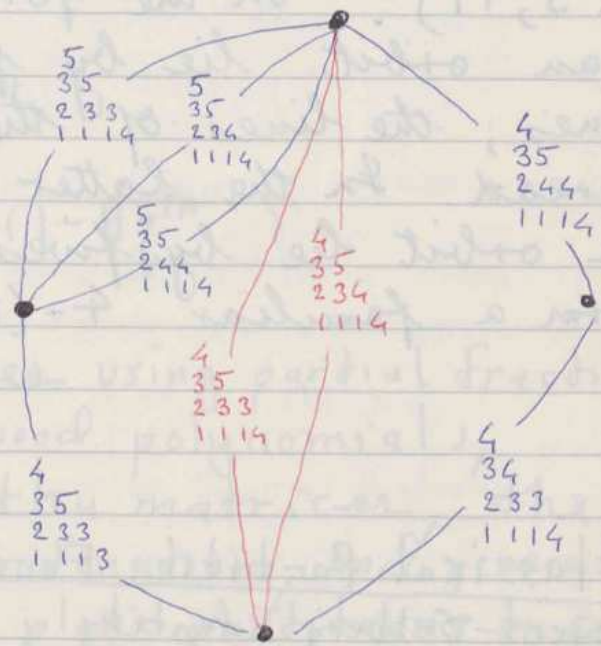 5
35
233
1114
5
35
234
1114
5
35
244
1114
4
35
244
1114
4
35
234
1114
4
35
233
1114
4
35
233
1113
4
34
233
1114